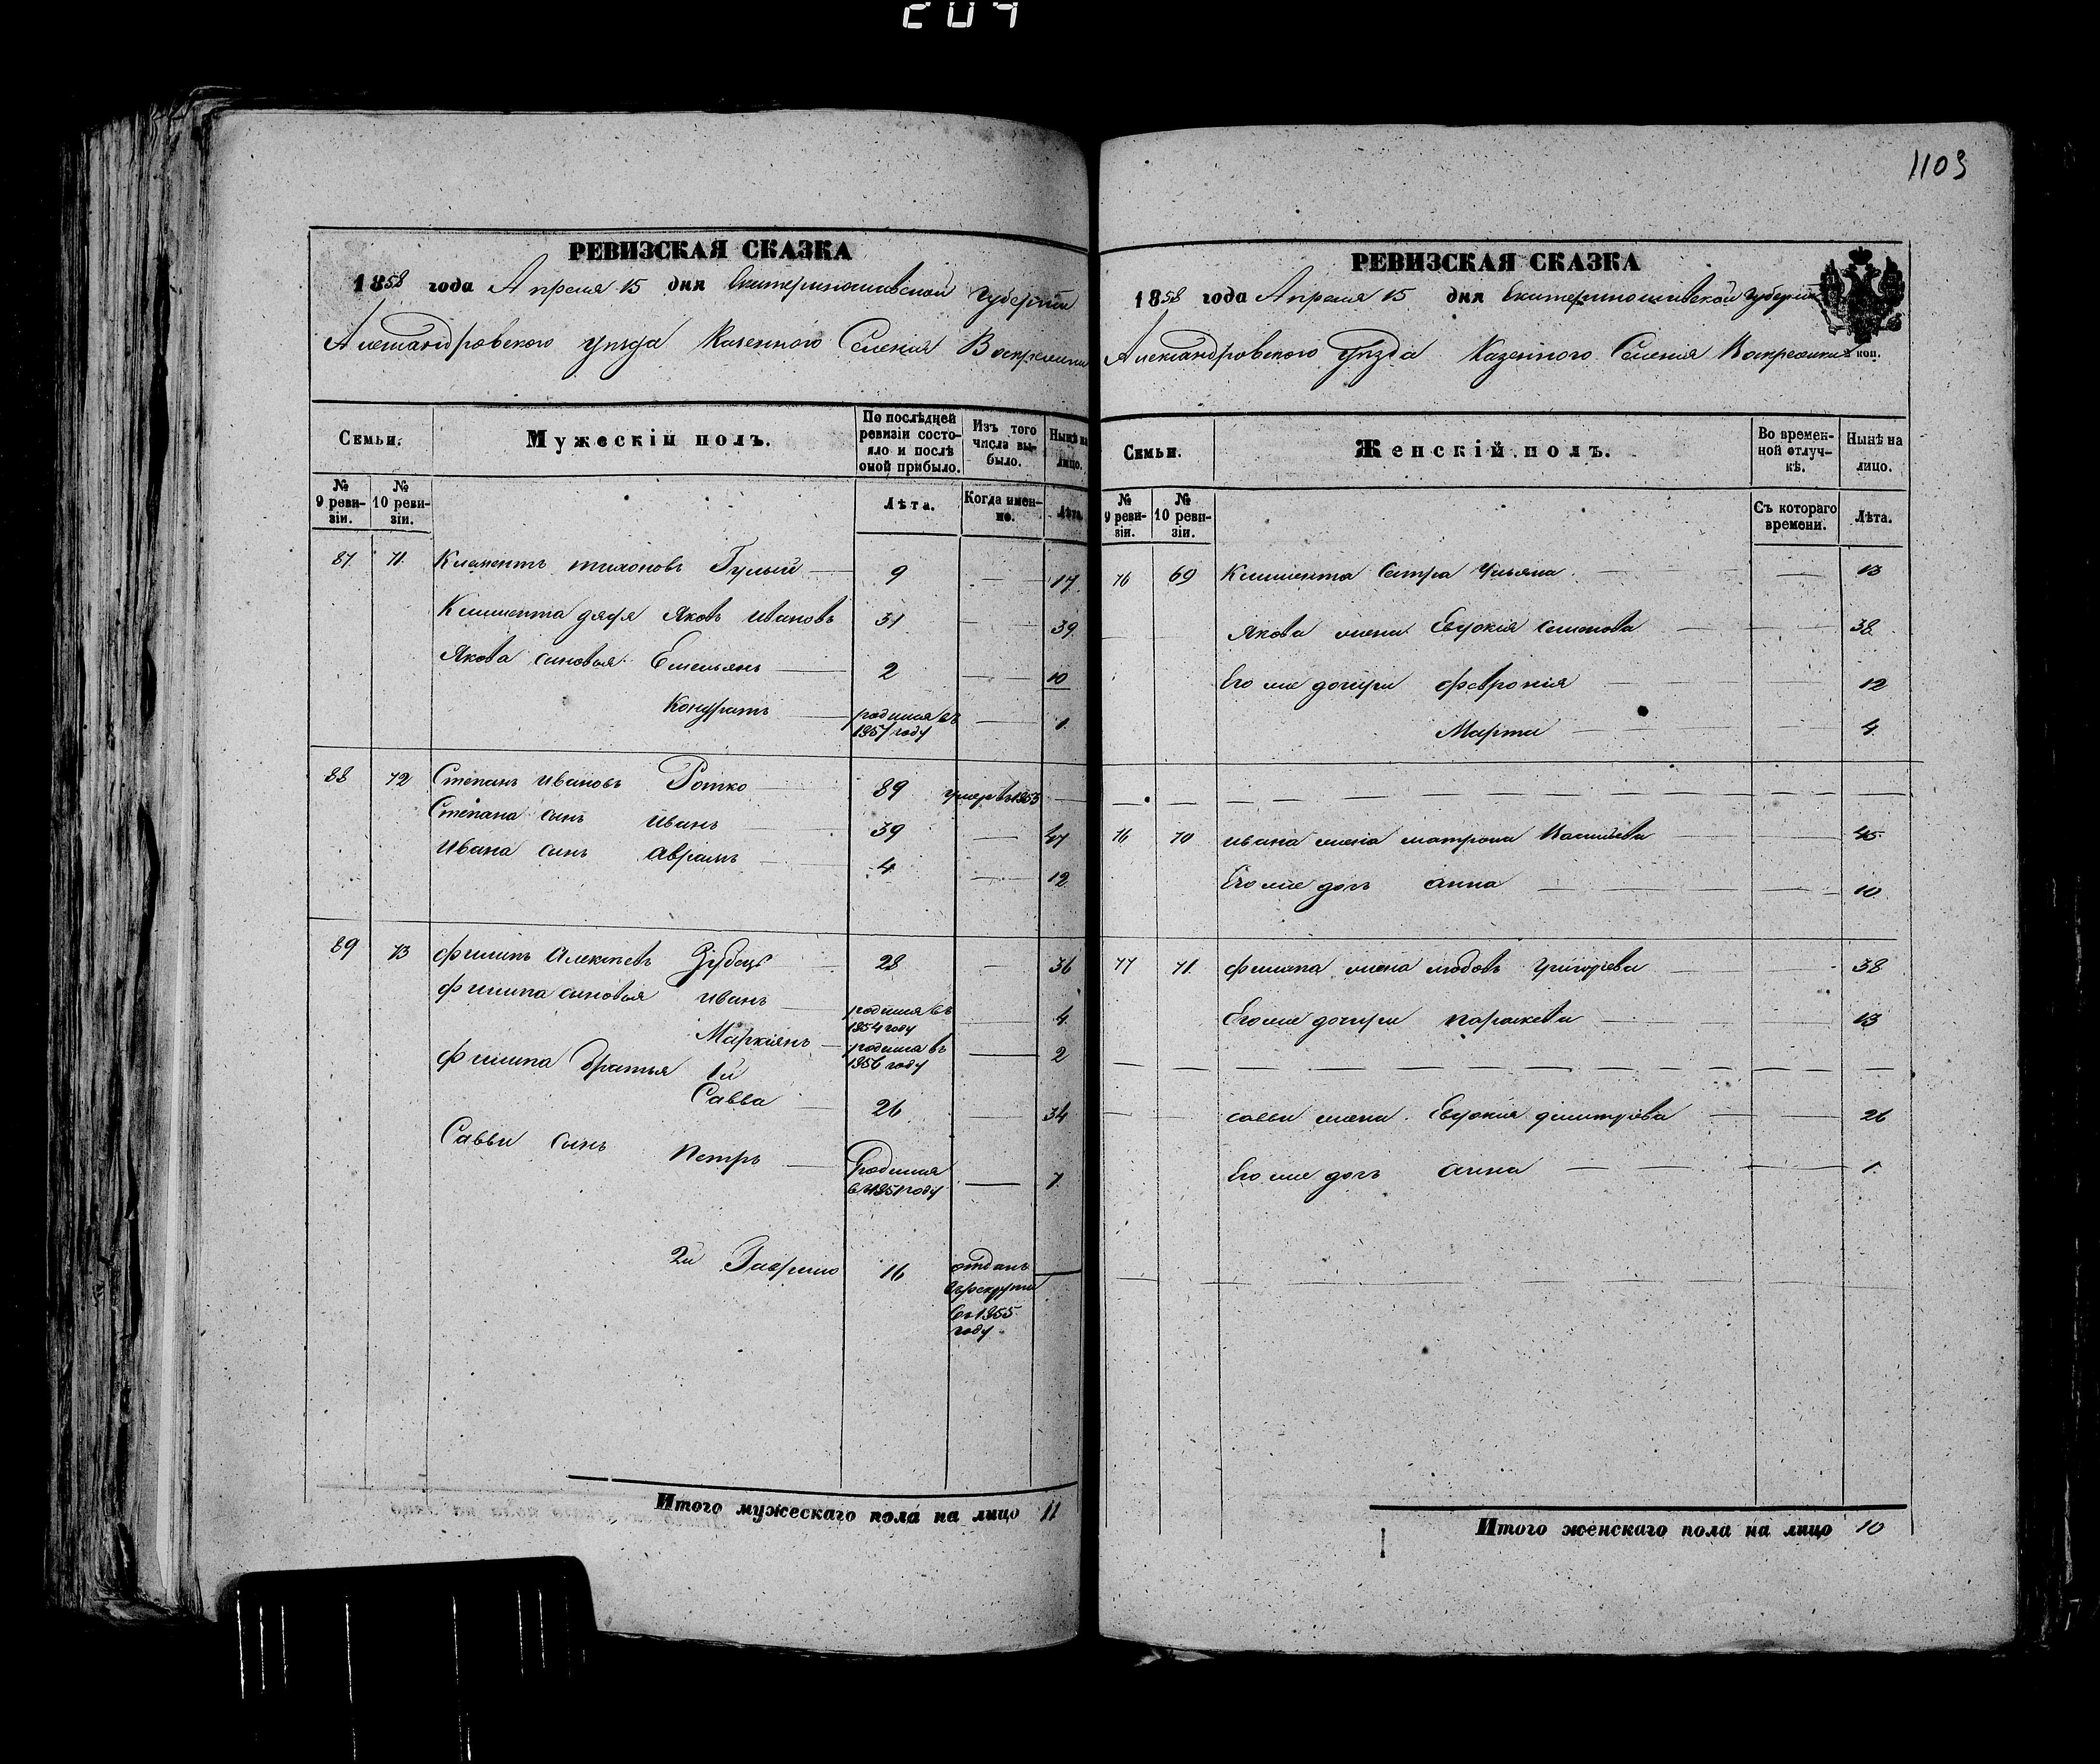 1109
РЕВИЗСКАЯ СКАЗКА
1858 года Апреля 15 дня Екатеринославской Губернии
Александровского уезда Казенного Селения Воскресенки
Семьи.
Мужескій полъ.
По послѣдней ревизіи состояло и послѣ оной прибыло.
Изъ того числа выбыло.
Нынѣ на лицо.
№ 9 ревизіи.
№ 10 ревизіи.
Лѣта.
Когда именно.
Лѣта.
87. 71. Климентъ тихоновъ Гулый 9 — 17
Климента дядя Яковъ ивановъ 31 — 39
Якова сыновья Емельянъ 2 — 10
Кондратъ родился въ 1857 году — 1
88 72 Степанъ ивановъ Ротко 89 умер въ 1853 —
Степана сынъ иванъ 39 — 47
ивана сынъ аврамъ 4 — 12
89 73 филипъ алексѣевъ Зубецъ 28 — 36
филипа сыновья иванъ родился въ 1854 году — 4
Маркіянъ родился въ 1856 году — 2
филипа братья 1й Савва 26 — 34
Саввы сынъ петръ родился въ 1851 году — 7
2й Гаврило 16 отданъ въ рекруты въ 1855 году —
Итого мужескаго пола на лицо 11
РЕВИЗСКАЯ СКАЗКА
1858 года Апреля 15 дня Екатеринославской Губернии
Александровского Уезда Казенного Селения Воскресенки
коп.
Семьи.
Женскій полъ.
Во временной отлучкѣ.
Нынѣ на лицо.
№ 9 ревизіи.
№ 10 ревизіи.
Съ котораго времени.
Лѣта.
76 69 Климента Сестра Ульяна — 13
Якова жена Евдокія семенова — 38
Его же дочери феврония — 12
Марта — 4
76 70 ивана жена матрона Васильева — 45
Его же дочь анна — 10
77 71. филипа жена любовь григоріева — 38
Его же дочери параскева — 13
саввы жена Евдокия димитріева — 26
Его же дочь анна — 1
Итого женскаго пола на лицо 10